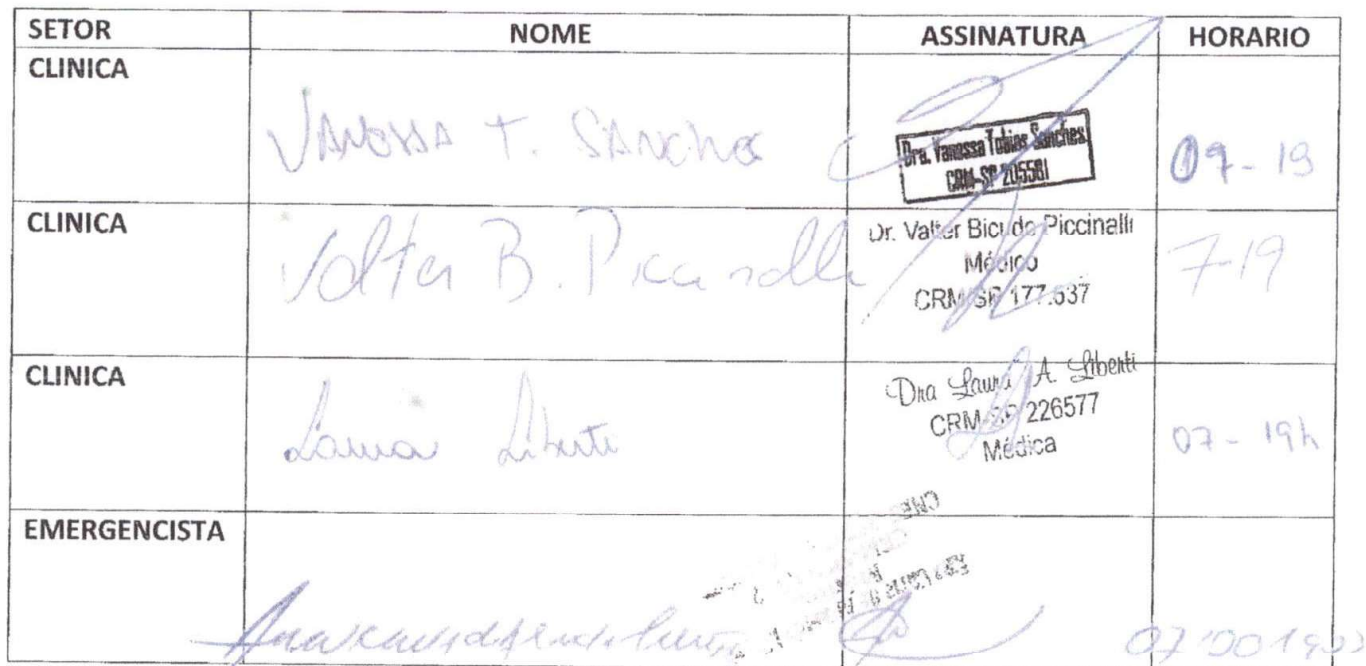 SETOR NOME ASSINATURA HORARIO
CLINICA
VANESSA T. SANCHES
Dra. Vanessa Tobias Sanches
CRM-SP 205581
07-19
CLINICA
Valter B. Piccinalli
Dr. Valter Bicudo Piccinalli
Médico
CRM-SP 177.637
7-19
CLINICA
Laura Liberti
Dra Laura A. Liberti
CRM-SP 226577
Médica
07-19h
EMERGENCISTA